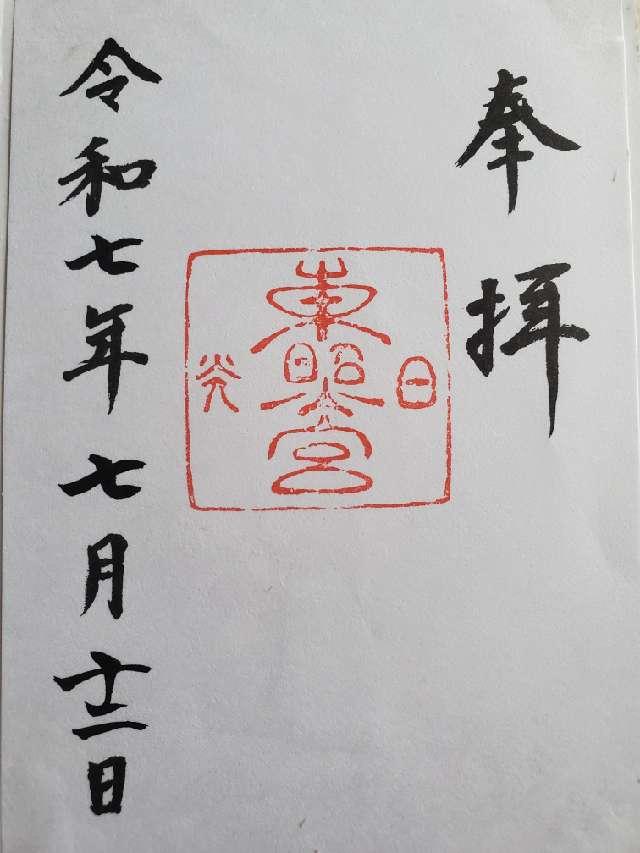 奉拝
日
東照宮
光
令和七年七月十二日